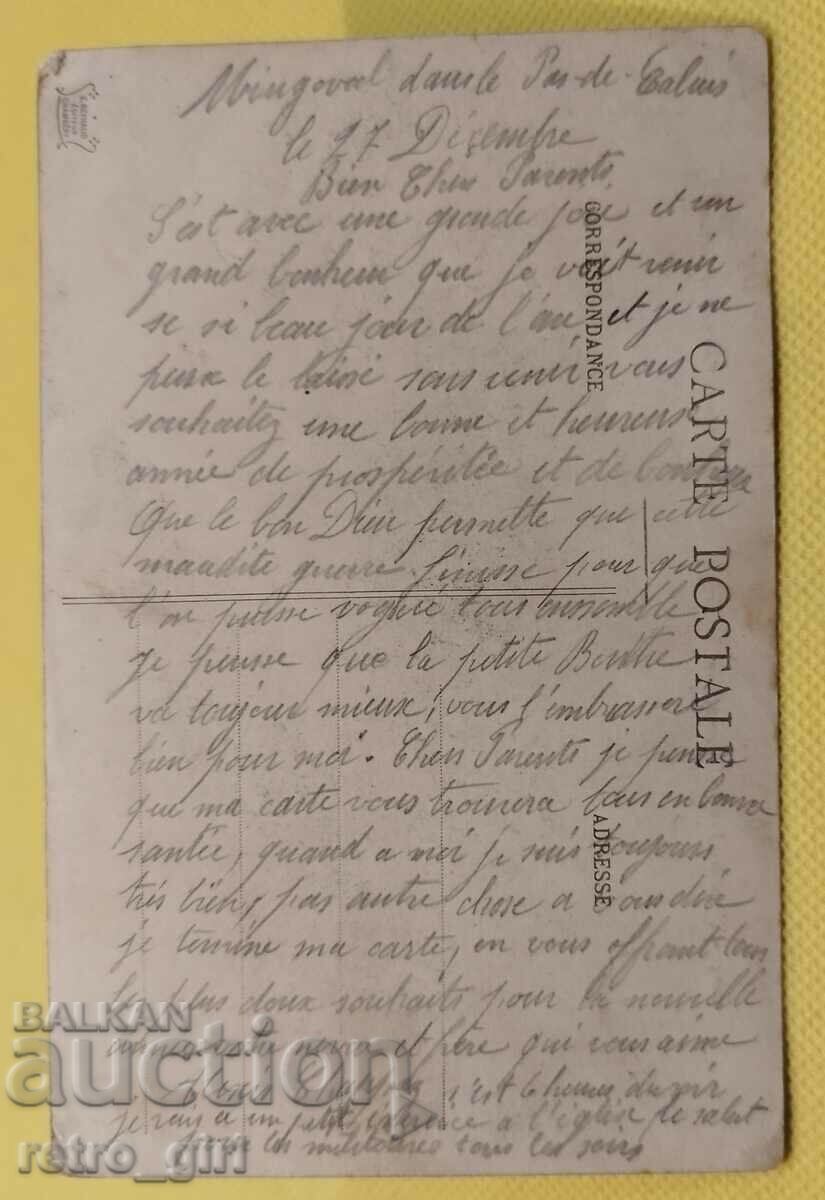 Mingoval dans le Pas-de-Calais
le 27 Décembre
Bien Cher Parents
S'est avec une grande joie et un
grand bonheur que je voit venir
se si beau jour de l'an et je ne
peux le laissé sans venir vous
souhaitez une bonne et heureuse
année de prospéritée et de bonheur
Que le bon Dieu permette que cette
maudite guerre finisse pour que
l'on puisse tous ensemble
je pense que la petite
va toujour mieux, vous l'embrasseré
bien pour moi. Chers Parents je pense
que ma carte vous trouvera tous en bonne
santée, quand a moi je suis toujours
très bien, pas autre chose a vous dire
je termine ma carte, en vous offrant tous
les plus doux souhaits pour la nouvelle
année votre et frère qui vous aime
s'est 6 heures du soir
je vais a un petit a l'église le salut
pour les militaires tous les soirs
CORRESPONDANCE
CARTE POSTALE
ADRESSE
BALKAN
auction
retro_girl